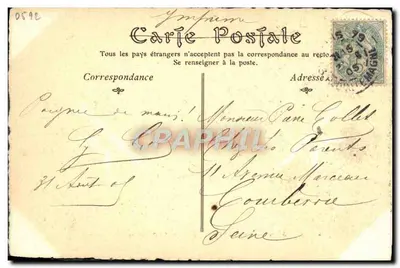 0592
Imprimé
Carte Postale
Tous les pays étrangers n'acceptent pas la correspondance au recto
Se renseigner à la poste.
Correspondance
Adresse
Poignée de mains !
31 Août 05
Monsieur Pierre Collet
Chez ses Parents
11 Avenue Marceau
Courbevoie
Seine
CPAPHIL